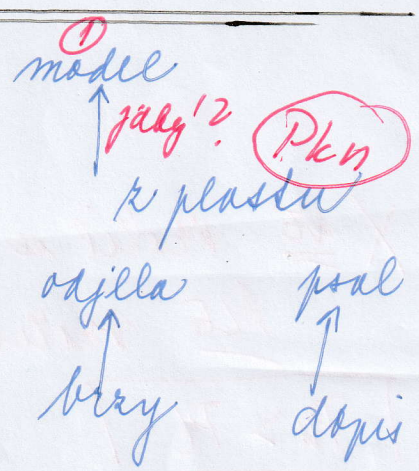 1
model
jaký? Pkn
z plastu
odjela psal
brzy dopis